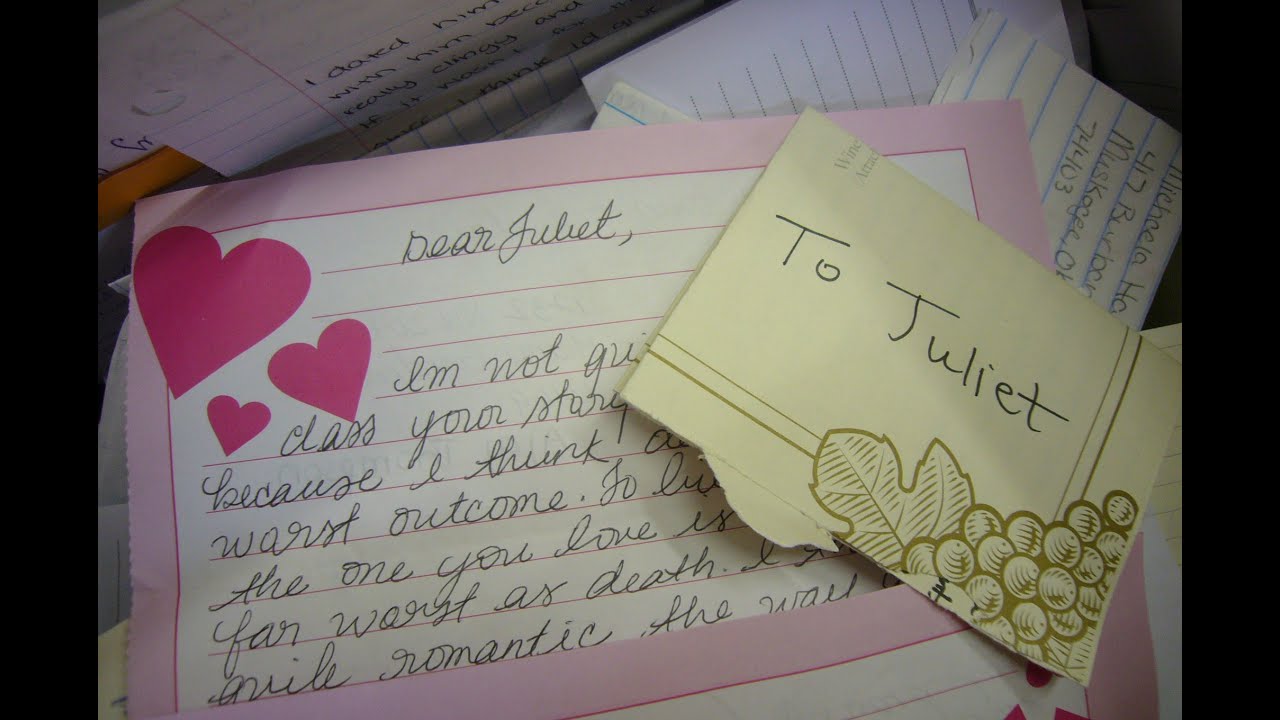 I dated him
with him beca
really clingy and
if it wasn't for
I think to give
Dear Juliet,
Im not qui
class your story
because I think
warst outcome. To li
the one you love is
far warst as death. I
quile romantic the way
Wine
Attac
To Juliet
Michaela Ha
Muskogee, OK
74403